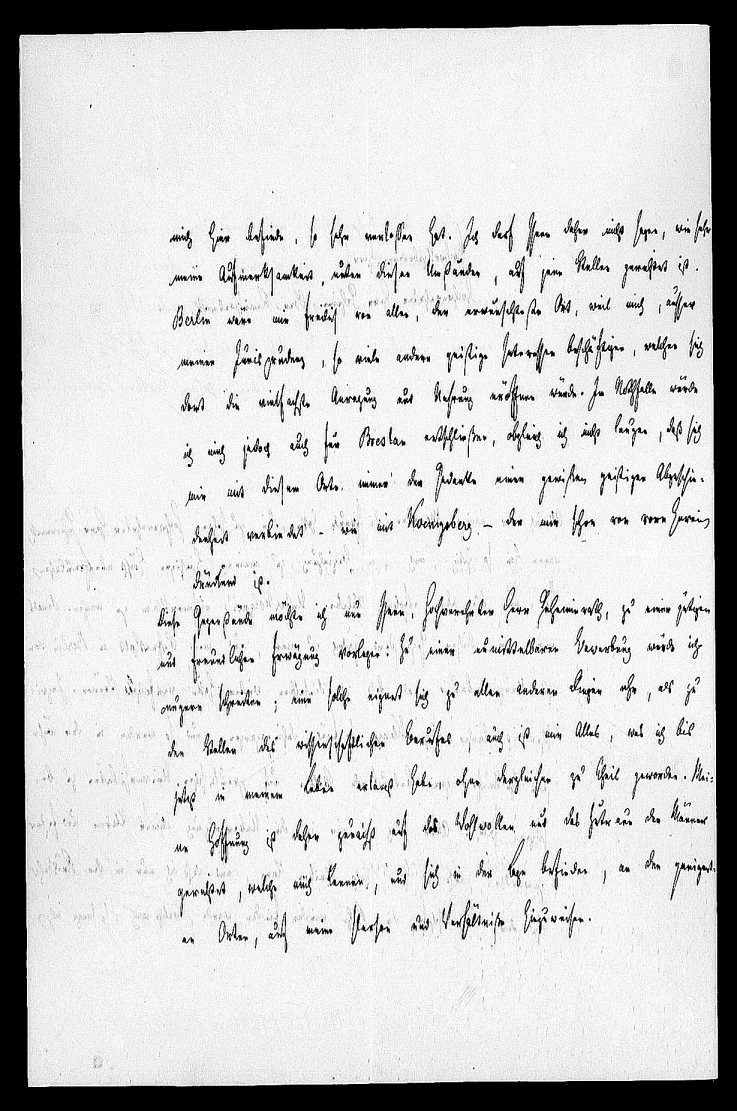 mich hier befinde, so sehr verlassen hat. Ich darf Ihnen daher nicht sagen, wie sehr
meine Aufmerksamkeit, unter diesen Umständen, auf jene Stellen gerichtet ist.
Berlin wäre mir freilich vor allen, der erwünschteste Ort, weil mich, ausser
meiner Jurisprudenz, so viele andere geistige Interessen beschäftigen, welchen sich
dort die vielfachste Anregung und Nahrung eröffnen würde. Im Nothfalle würde
ich mich jedoch auch für Breslau entschließen, obgleich ich nicht leugne, daß sich
mir mit diesem Orte immer der Gedanke einer gewissen geistigen Abgeschie-
denheit verbindet – wie mit Koenigsberg – der mir schon von vorn herein
drückend ist.
Diese Gegenstände möchte ich nun Ihnen, Hochverehrter Herr Geheimerath, zu einer gütigen
und freundlichen Erwägung vorlegen: Zu einer unmittelbaren Bewerbung würde ich
ungern schreiten; eine solche eignet sich zu allen anderen Dingen eher, als zu
den Stellen des wissenschaftlichen Berufes, auch ist mir Alles, was ich bis
jetzt in meinem Leben erlangt habe ohne dergleichen zu Theil geworden. Mei-
ne Hoffnung ist daher zunächst auf das Wohlwollen und das Zutrauen der Männer
gerichtet, welche mich kennen, und sich in der Lage befinden, an den geeignet-
en Orten, auf meine Person und Verhältnisse hinzuweisen.